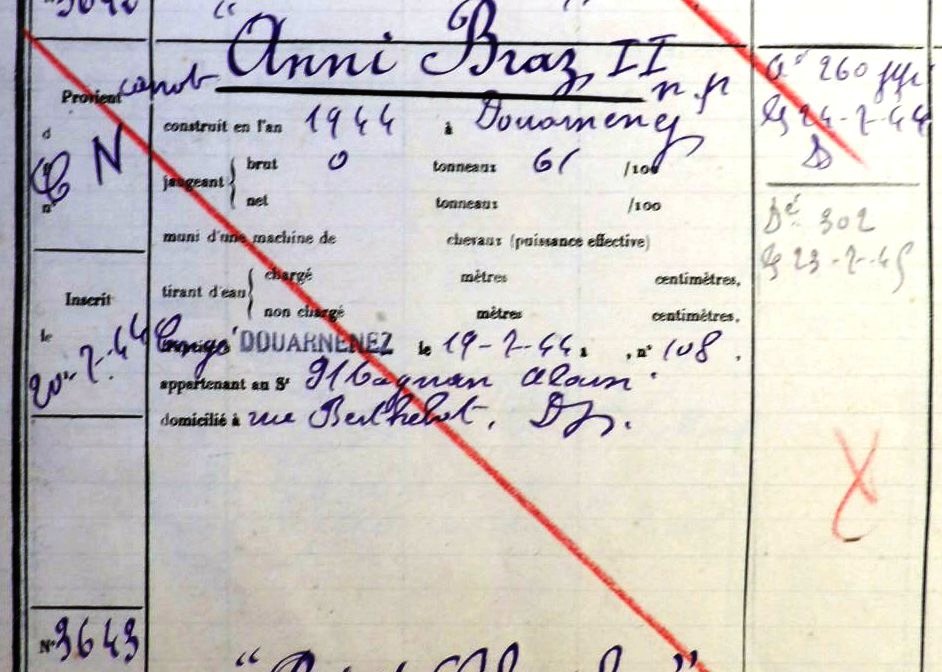 "Anni Braz II" n.p
canot
Provient
C N
n°
construit en l'an 1944 à Douarnenez
jaugeant brut 0 tonneaux 61 /100
net tonneaux /100
muni d'une machine de chevaux (puissance effective)
tirant d'eau chargé mètres centimètres,
non chargé mètres centimètres.
Congé DOUARNENEZ le 19-7-44, n° 108.
appartenant au Sr Alain
domicilié à rue Berthelot, Dz.
Inscrit
le
20-7-44
Ct 260
24-7-44
D
Dé 302
23-7-45
X
N° 3643